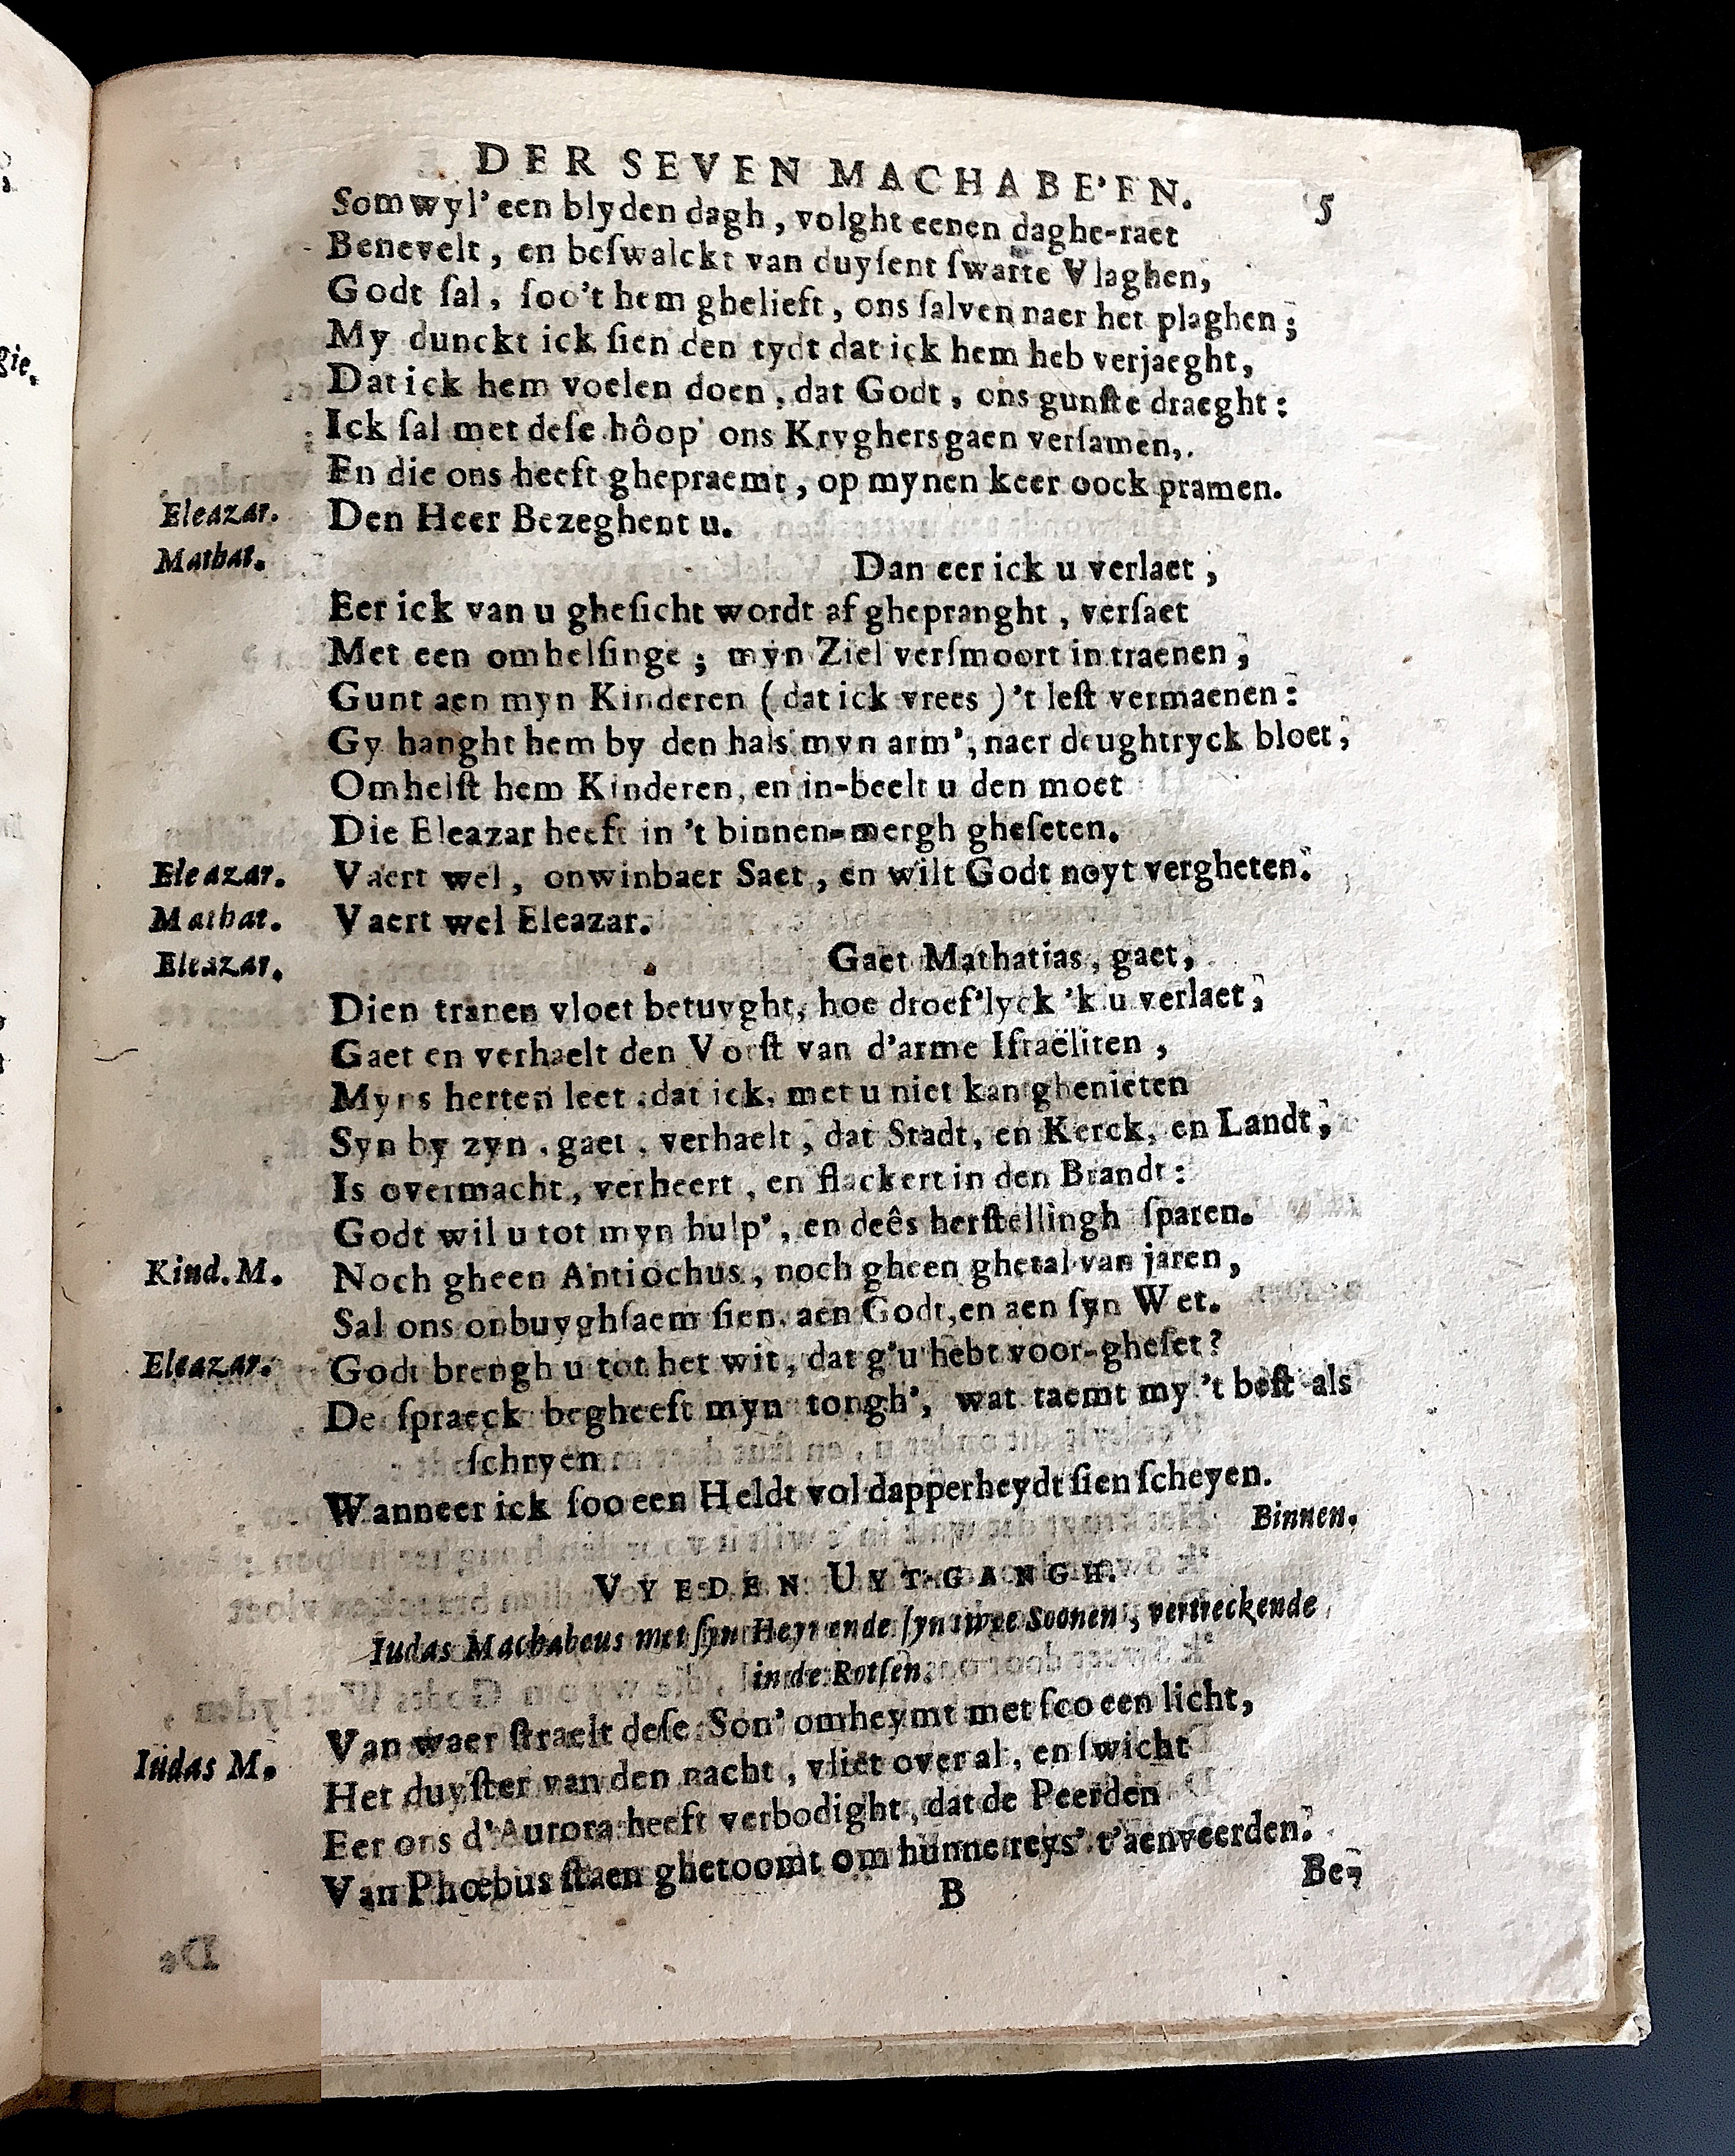 DER SEVEN MACHABE'EN. 5
Somwyl' een blyden dagh, volght eenen daghe-raet
Benevelt, en beſwalckt van duyſent ſwarte Vlaghen,
Godt ſal, ſoo't hem ghelieft, ons ſalven naer het plaghen;
My dunckt ick ſien den tydt dat ick hem heb verjaeght,
Dat ick hem voelen doen, dat Godt, ons gunſte draeght:
Ick ſal met deſe hôop' ons Kryghers gaen verſamen,
En die ons heeft ghepraemt, op mynen keer oock pramen.
Eleazar. Den Heer Bezeghent u.
Mathat. Dan eer ick u verlaet,
Eer ick van u gheſicht wordt af ghepranght, verſaet
Met een omhelſinge; myn Ziel verſmoort in traenen,
Gunt aen myn Kinderen (dat ick vrees) 't leſt vermaenen:
Gy hanght hem by den hals myn arm', naer deughtryck bloet,
Omhelſt hem Kinderen, en in-beelt u den moet
Die Eleazar heeft in 't binnen-mergh gheſeten.
Eleazar. Vaert wel, onwinbaer Saet, en wilt Godt noyt vergheten.
Mathat. Vaert wel Eleazar.
Eleazar. Gaet Mathatias, gaet,
Dien tranen vloet betuyght, hoe droef'lyck 'k u verlaet,
Gaet en verhaelt den Vorſt van d'arme Iſraëliten,
Myns herten leet, dat ick, met u niet kan ghenieten
Syn by zyn, gaet, verhaelt, dat Stadt, en Kerck, en Landt,
Is overmacht, verheert, en flackert in den Brandt:
Godt wil u tot myn hulp', en deês herſtellingh ſparen.
Kind. M. Noch gheen Antiochus, noch gheen ghetal van jaren,
Sal ons onbuyghſaem ſien, aen Godt, en aen ſyn Wet.
Eleazar. Godt brengh u tot het wit, dat g'u hebt voor-gheſet?
De ſpraeck begheeft myn tongh', wat taemt my 't beſt als
ſchryen
Wanneer ick ſoo een Heldt vol dapperheydt ſien ſcheyen.
Binnen.
VYEDEN UYT-GANGH.
Iudas Machabeus met ſyn Heyr ende ſyn twee Soonen, vertreckende
in de Rotſen.
Iudas M. Van waer ſtraelt deſe Son' omheymt met ſoo een licht,
Het duyſter van den nacht, vliet over al, en ſwicht
Eer ons d'Aurora heeft verbodight, dat de Peerden
Van Phœbus ſtaen ghetoomt om hunne reys' t'aenveerden.
B Be-
De
gie.